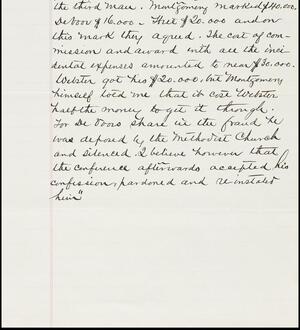 the third man. Montgomery marked $40.000
De Voor $16.000 - Hill $20.000 and on
this mark they agreed. The cost of com-
mission and award with all the inci
dental expenses amounted to near $30.000.
Webster got his $20.000, but Montgomery
himself told me that it cost Webster
half the money to get it through.
For De Voors share in the fraud he
was deposed by the Methodist Church
and silenced. I believe however that
the conference afterwards accepted his
confession, pardoned and re-instated
him"